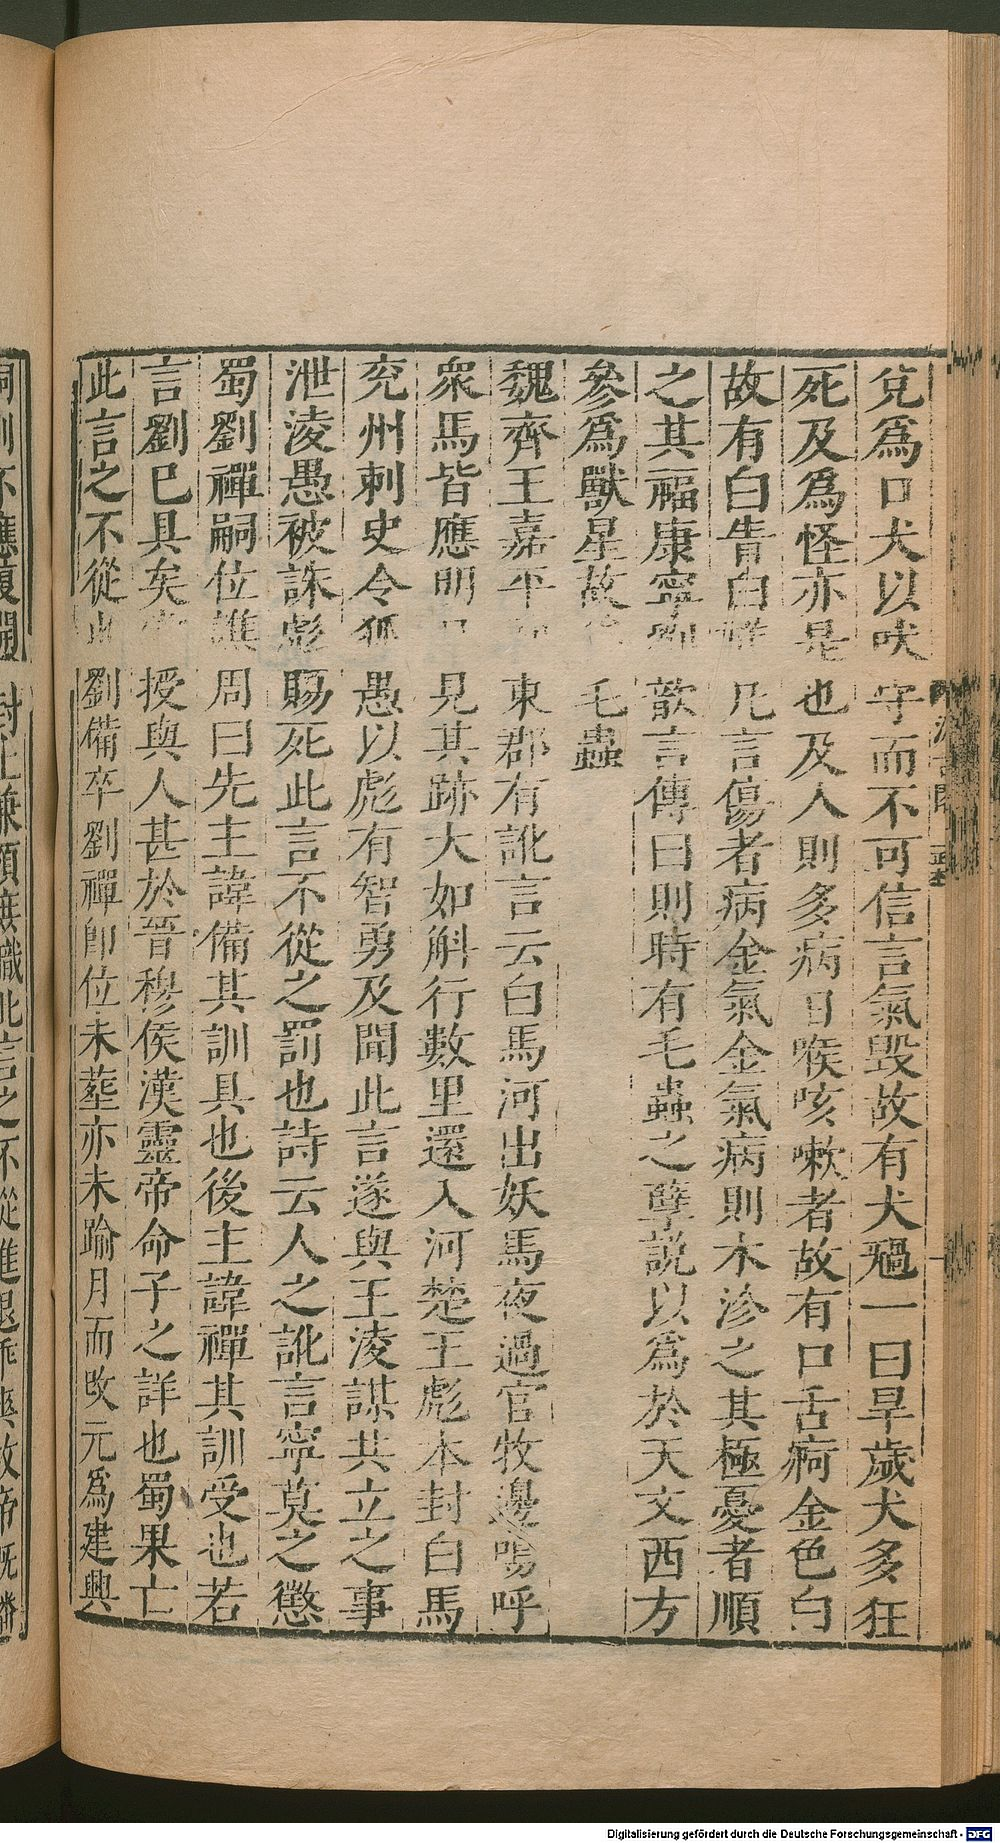 兌爲口犬以吠守而不可信言氣毀故有犬禍一曰旱歲犬多狂
死及爲怪亦是也及人則多病口喉咳嗽者故有口舌痾金色白
故有白眚白祥凡言傷者病金氣金氣病則木沴之其極憂者順
之其福康寧劉歆言傳曰則時有毛蟲之孽說以爲於天文西方
參爲獸星故毛蟲
魏齊王嘉平東郡有訛言云白馬河出妖馬夜過官牧邊鳴呼
衆馬皆應明日見其跡大如斛行數里還入河楚王彪本封白馬
兖州刺史令狐愚以彪有智勇及聞此言遂與王淩謀共立之事
泄淩愚被誅彪賜死此言不從之罰也詩云人之訛言寧莫之懲
蜀劉禪嗣位譙周曰先主諱備其訓具也後主諱禪其訓受也若
言劉已具矣授與人甚於晉穆侯漢靈帝命子之詳也蜀果亡
此言之不從也劉備卒劉禪卽位未葬亦未踰月而改元爲建興
Digitalisierung gefördert durch die Deutsche Forschungsgemeinschaft - DFG